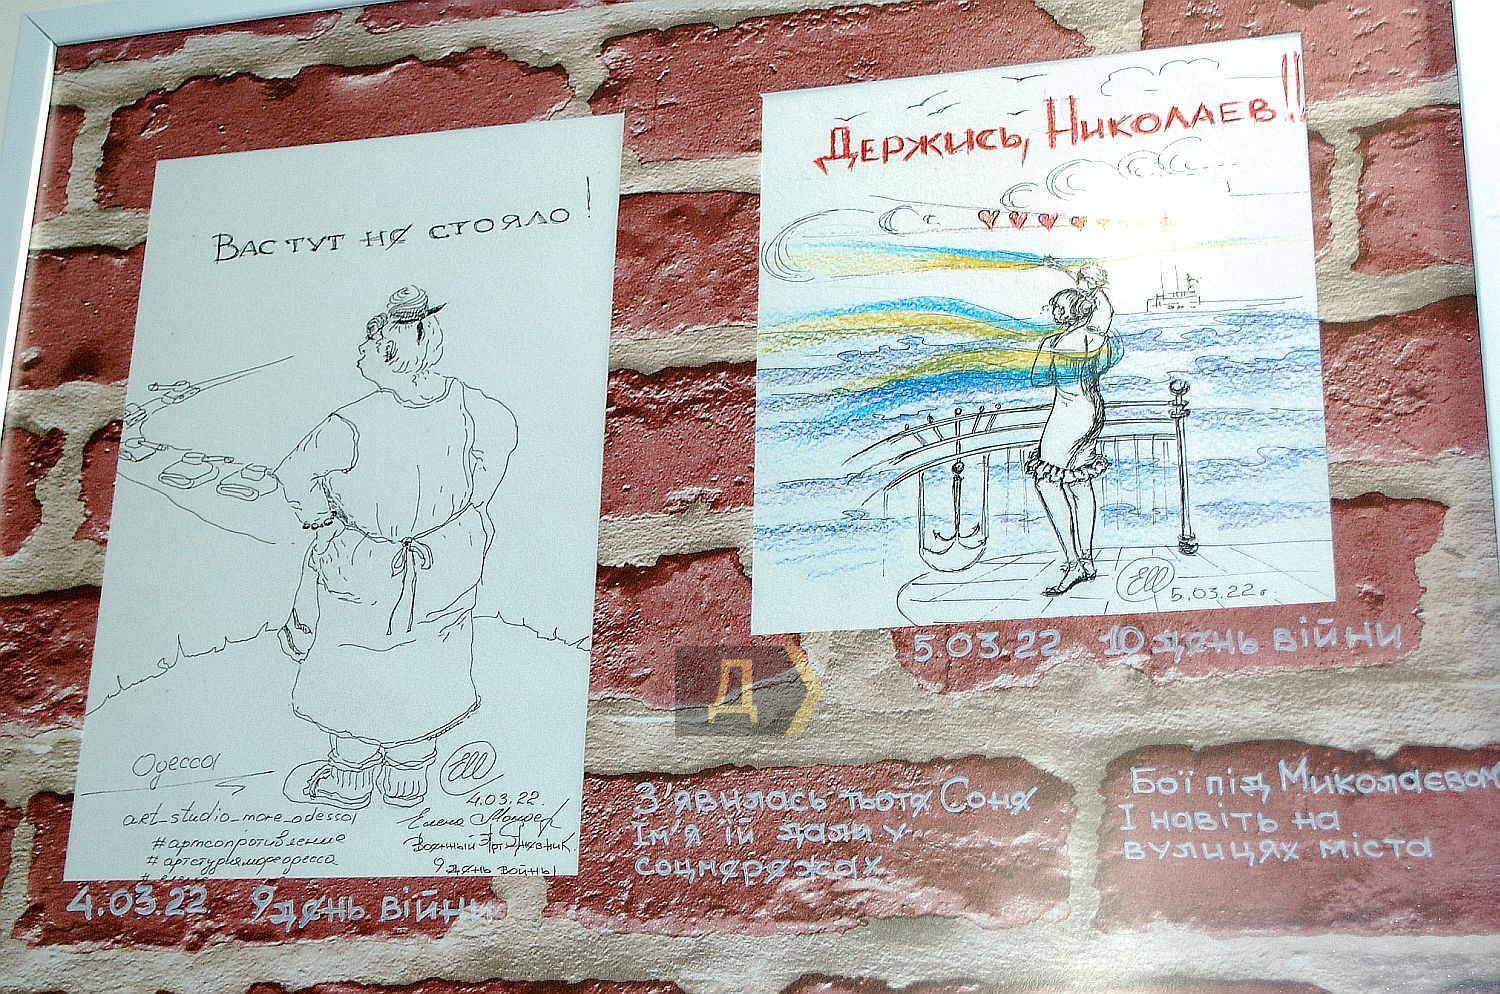 Вас тут не стояло!
Одесса
art_studio_more_odessa
#артсопротивление
#артстудияморе одесса
ЕШ
4.03.22.
Елена
Военный Арт Дневник.
9 день войны
4.03.22 9 день війни
Держись, Николаев!!
ЕШ
5.03.22г
5.03.22 10 день війни
Д
З'явилась тьотя Соня
Ім'я їй дали у
соцмережах
Бої під Миколаєвом
І навіть на
вулицях міста